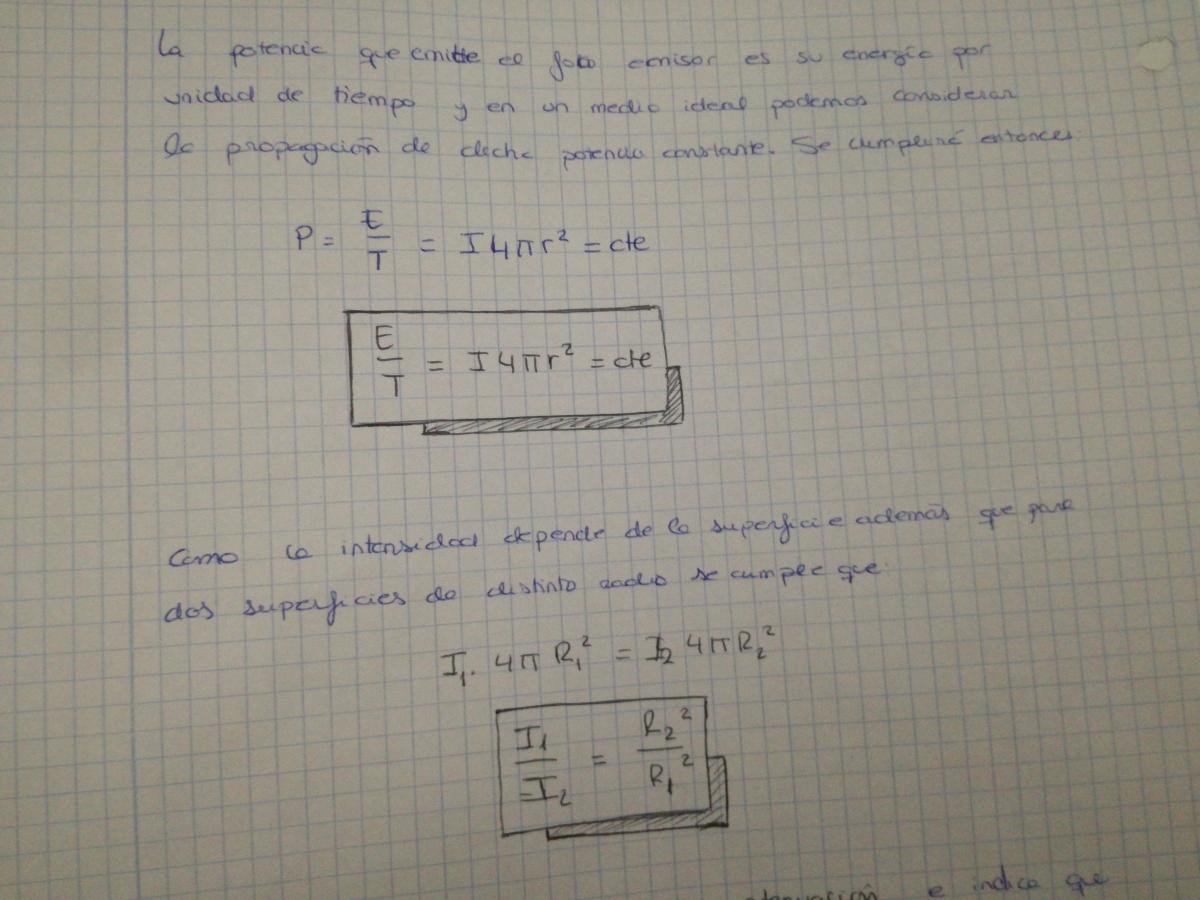 La potencia que emitte el foco emisor es su energía por
unidad de tiempo y en un medio ideal podemos considerar
la propagación de dicha potencia constante. Se cumplirá entonces:
P = E/T = I 4πr² = cte
E/T = I 4πr² = cte
Como la intensidad depende de la superficie además que para
dos superficies de distinto radio se cumple que:
I₁. 4π R₁² = I₂ 4π R₂²
I₁/I₂ = R₂²/R₁²
e indica que